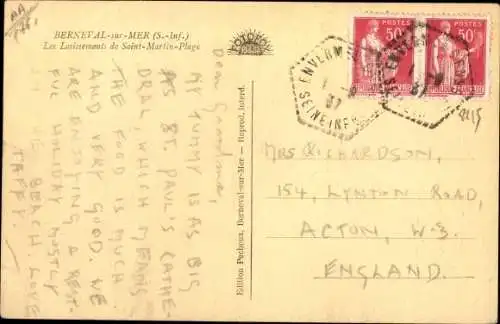 BERNEVAL-sur-MER (S.-Inf.)
Les Lotissements de Saint-Martin-Plage
Dear Grandma,
MY TUMMY IS AS BIG
AS ST. PAUL'S CATHE-
DRAL, WHICH MEANS
THE FOOD IS MUCH
AND VERY GOOD. WE
ARE ENJOYING A REST-
FUL HOLIDAY MOSTLY
BEACH. LOVE
TAFFY.
Edition Pecheux, Berneval-sur-Mer - Reprod. Interd.
POSTES
50
POSTES
50
ENVERM
37
SEINE INF
MRS RICHARDSON,
154, LYNTON ROAD,
ACTON, W.3.
ENGLAND.